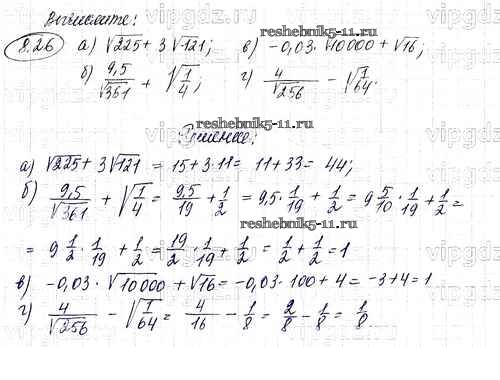 Вычислите:
8.26 а) √225 + 3√121; в) -0,03·√10000 + √16;
б) 9,5/√361 + √(1/4); г) 4/√256 - √(1/64).
Решение:
а) √225 + 3√121 = 15+3·11 = 11+33 = 44;
б) 9,5/√361 + √(1/4) = 9,5/19 + 1/2 = 9,5·1/19 + 1/2 = 9 5/10·1/19 + 1/2 =
= 9 1/2·1/19 + 1/2 = 19/2·1/19 + 1/2 = 1/2 + 1/2 = 1
в) -0,03·√10000 + √16 = -0,03·100+4 = -3+4 = 1
г) 4/√256 - √(1/64) = 4/16 - 1/8 = 2/8 - 1/8 = 1/8.
reshebnik5-11.ru
reshebnik5-11.ru
vipgdz.ru